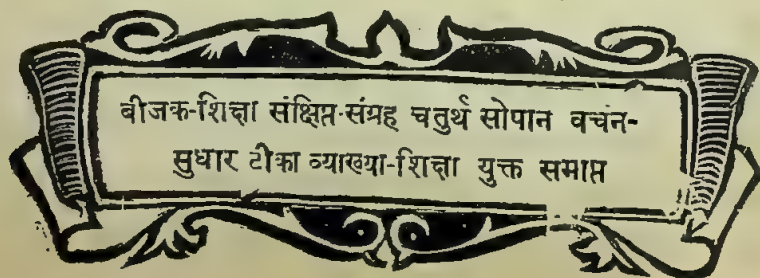 बीजक-शिक्षा संक्षिप्त-संग्रह चतुर्थ सोपान वचन-
सुधार टीका व्याख्या-शिक्षा युक्त समाप्त